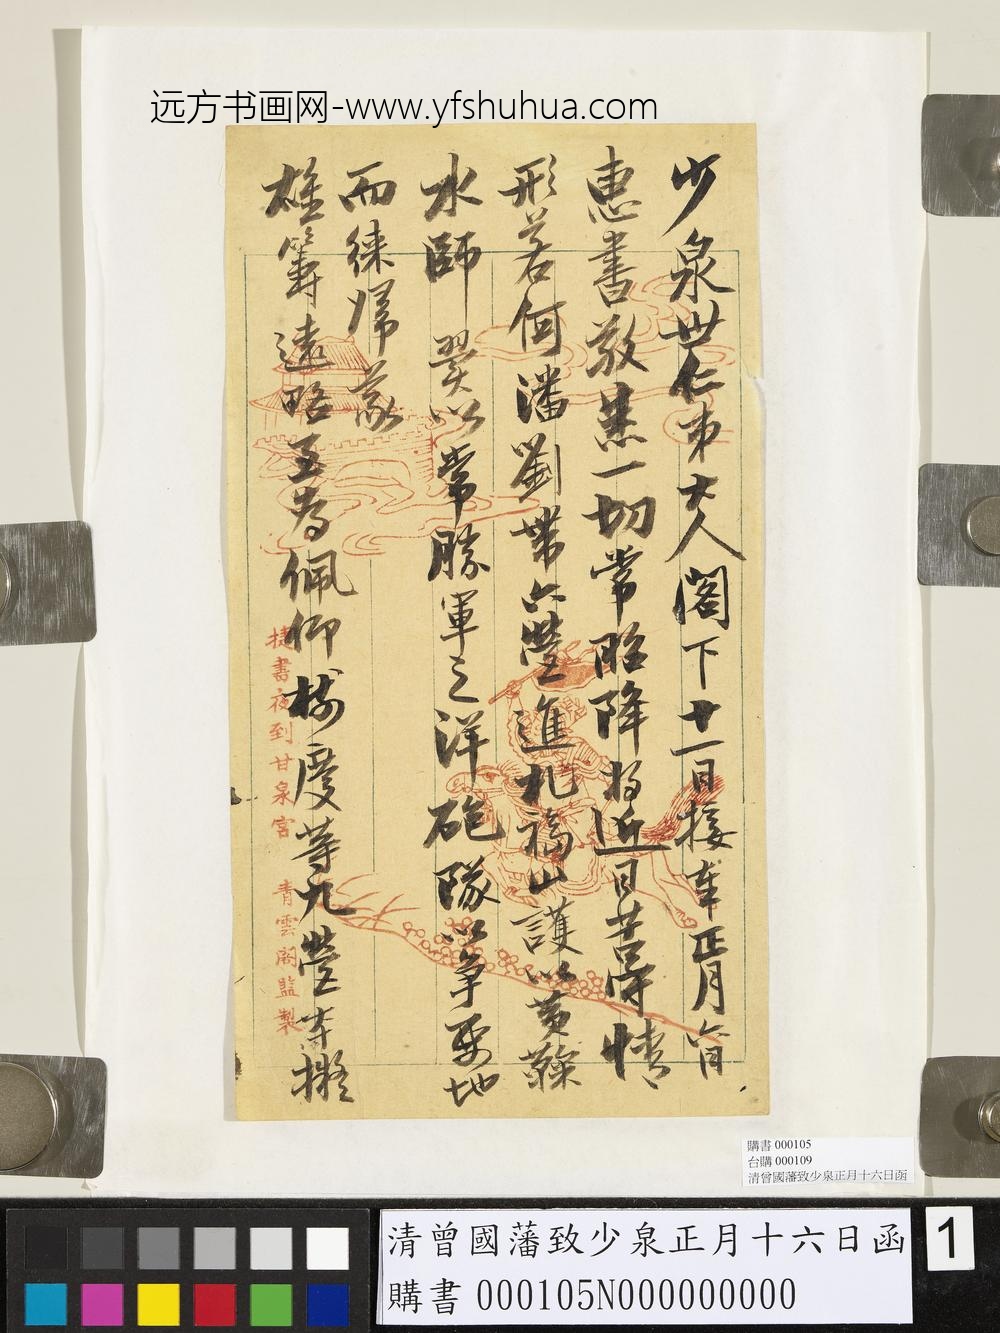 远方书画网-www.yfshuhua.com
少泉世仁弟大人閣下十一日接奉正月六日
惠書敬悉一切常昭降將近日守禦情
形若何潘劉帶六營進札福山護以黃
水師翼以常勝軍之洋砲隊以爭要地
而徠歸義
雄籌遠略至為佩仰樹慶等九營
捷書夜到甘泉宮 青雲閣監製
購書 000105
台購 000109
清曾國藩致少泉正月十六日函
清曾國藩致少泉正月十六日函
購書 000105N000000000
1